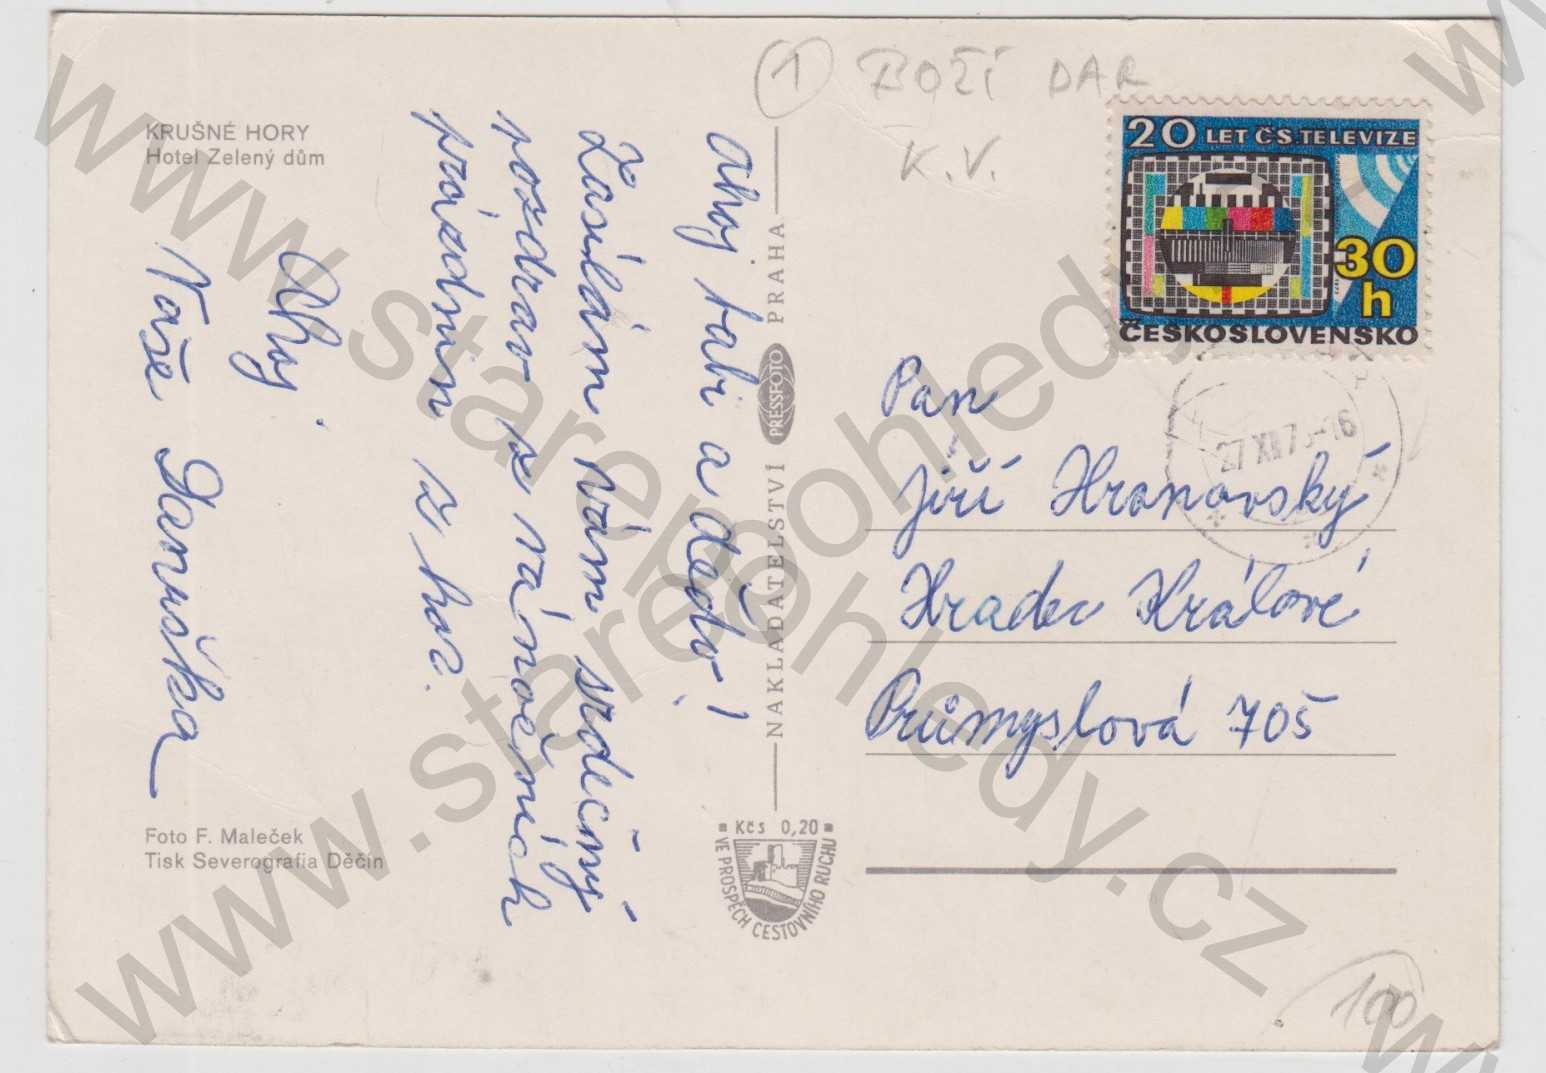 KRUŠNÉ HORY
Hotel Zelený dům
Ahoj babi a dědo!
Zasílám vám srdečný
pozdrav z vánočních
prázdnin z hor.
Ahoj
Vaše Danuška
Foto F. Maleček
Tisk Severografia Děčín
NAKLADATELSTVÍ PRESSFOTO PRAHA
Kčs 0,20
VE PROSPĚCH CESTOVNÍHO RUCHU
1 BOŽÍ DAR
K.V.
20 LET ČS TELEVIZE
30
h
ČESKOSLOVENSKO
27 XII 73-16
Pan
Jiří Hronovský
Hradec Králové
Průmyslová 705
100
www.starepohledy.cz
www.starepohledy.cz